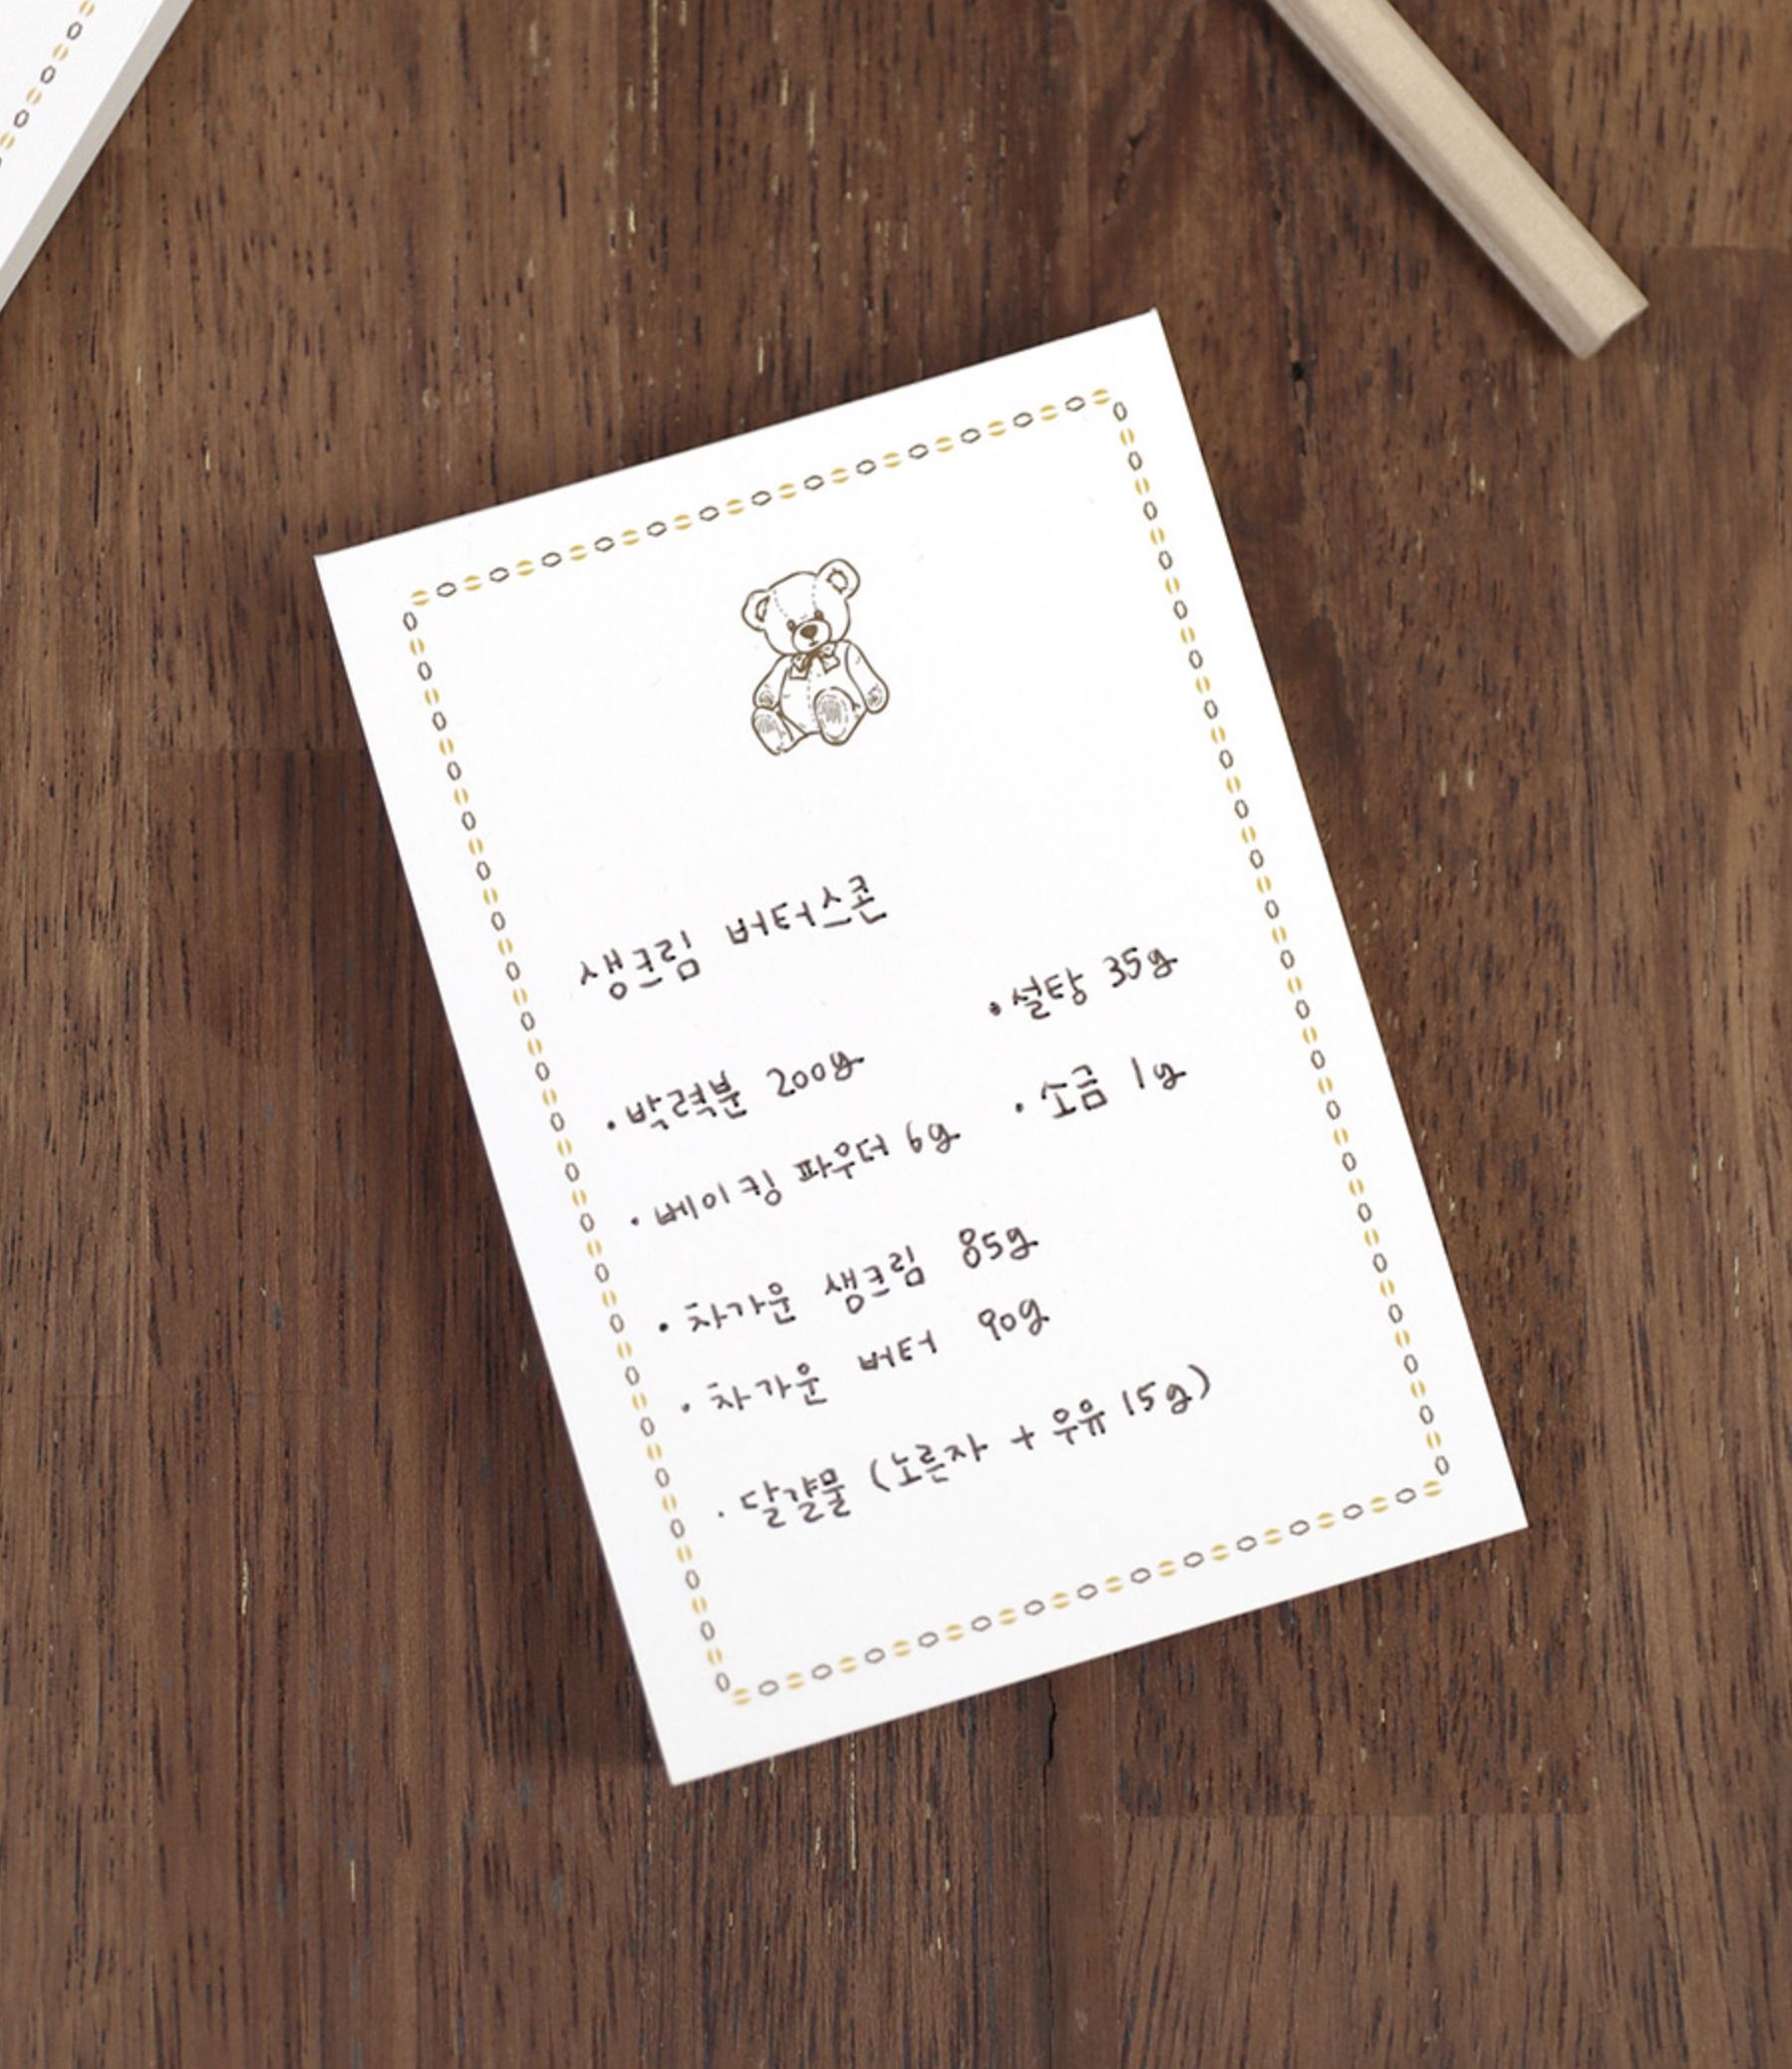 생크림 버터스콘
• 박력분 200g
• 설탕 35g
• 베이킹 파우더 6g
• 소금 1g
• 차가운 생크림 85g
• 차가운 버터 90g
• 달걀물 (노른자 + 우유 15g)